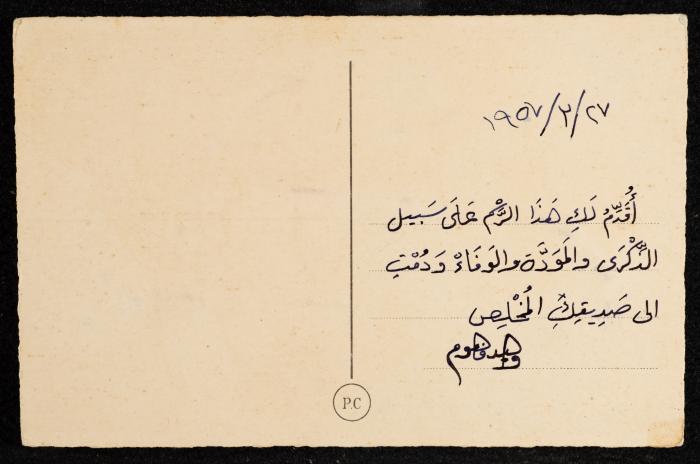 ١٩٥٧/٣/٢٧
أُقَدِّمُ لَكِ هَذَا الرَّسْم عَلَى سَبِيل
الذِّكْرَى والمَوَدَّة والوَفَاءْ وَدُمْتِ
الى صَدِيقِكِ المُخْلِص
P.C